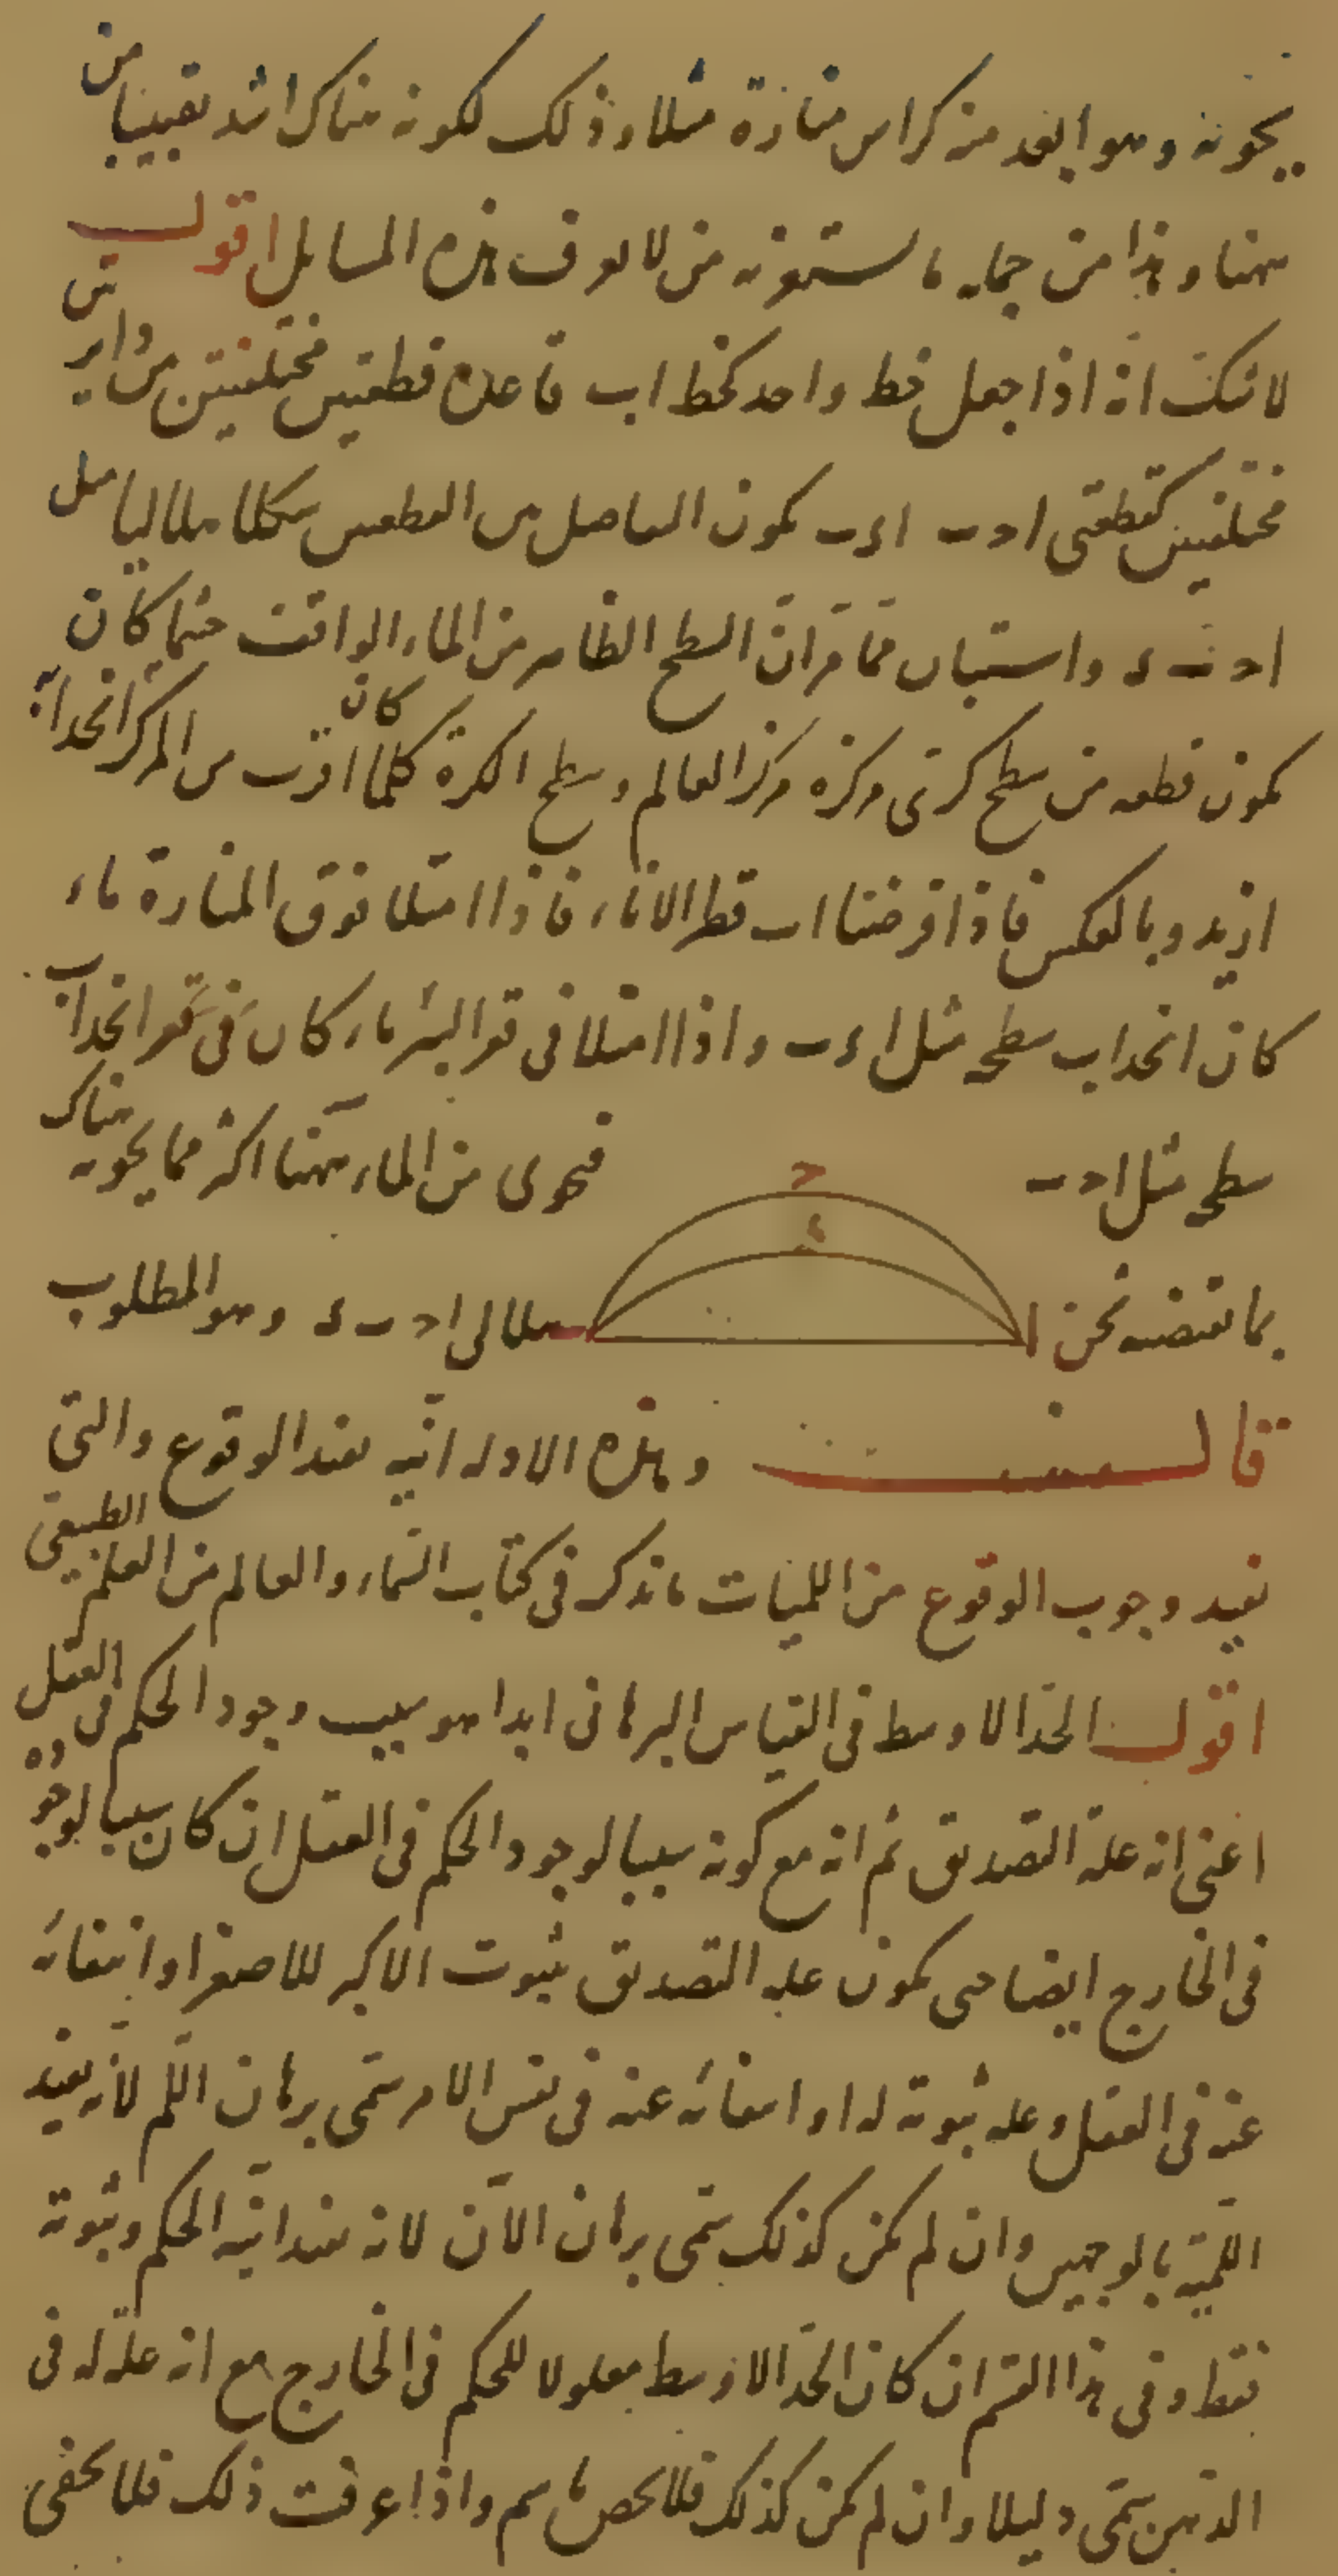 يحويه وهو ابعد منه كراس منارة مثلا وذلك لكونه هناك اشد تقبيبا من
ههنا وهذا من جمله ما يستغربه من لا يعرف هذه المسايل اقول
لا شك انه اذا جعل خط واحد كخط اب قاعدة قطعتين مختلفتين من دايرتين
مختلفتين كقطعتى احب اءب يكون الحاصل من القطعتين شكلا هلاليا مثل
احبء واستبان مما مر ان السطح الظاهر من الماء الواقف حيثما كان
يكون قطعه من سطح كرى مركزه مركز العالم وسطح الكرة كلما كان اقرب من المركز انحدابه
ازيد وبالعكس فاذا فرضنا اب قطر الاناء فاذا امتلا فوق المنارة ماء
كان انحداب سطحه مثل اءب واذا امتلا فى قعر البئر ماء كان فى قعر انحداب
سطحه مثل احب فيحوى من الماء ههنا اكثر مما يحويه هناك
بما يقتضيه نحن ا ب هلالى احبء وهو المطلوب
قال وهذه الادله انيه تفيد الوقوع والتى
تفيد وجوب الوقوع من اللميات ما تذكر فى كتاب السماء والعالم من العلم الطبيعى
اقول الحد الاوسط فى القياس البرهانى ابدا هو سبب وجود الحكم فى العقل
اعنى انه علة التصديق ثم انه مع كونه سببا لوجود الحكم فى العقل ان كان سببا لوجوده
فى الخارج ايضا حتى يكون علة التصديق بثبوت الاكبر للاصغر او انتفائه
عنه فى العقل وعلة ثبوته له او انتفائه عنه فى نفس الامر سمى برهان اللم لانه يفيد
اللميه بالوجهين وان لم يكن كذلك سمى برهان الان لانه يفيد انيه الحكم وثبوته
فقط وفى هذا القسم ان كان الحد الاوسط معلولا للحكم فى الخارج مع انه علة له فى
الذهن سمى دليلا وان لم يكن كذلك فلا يخص باسم واذا عرفت ذلك فلا يخفى
ح
ء